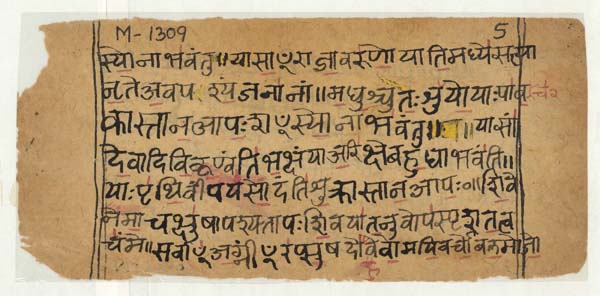 M-1309 5
स्योना भवंतु ॥ यासा ꣳ राजा वरुणो याति मध्ये सत्या
नृते अवपश्यं जनानां ॥ मधुश्चुतः शुचयो याः पाव
कास्तान आपः श ꣳ स्योना भवंतु ॥ यासां
देवा दिवि कृण्वंति भक्षं या अंतरिक्षे बहुधा भवंति ॥
याः पृथिवीं पयसोंदंति शुक्रास्तान आपः० ॥ शिवे
न मा चक्षुषा पश्यतापः शिवया तनुवोपस्पृशत त्व
चं मे ॥ सर्वा ꣳ अग्नी ꣳ रप्सुषदो वो मयि वर्चो बलमोजो